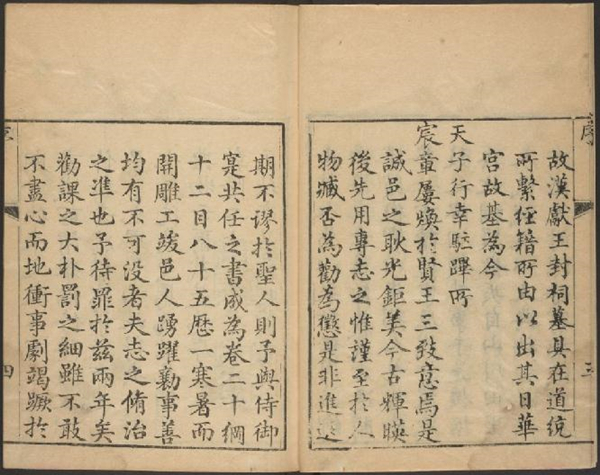 故漢獻王封祠墓具在道統
所繫經籍所由以出其日華
宮故基為今
天子行幸駐蹕所
宸章屢煥於賢王三致意焉是
誠邑之耿光鉅美今古輝暎
後先用專志之惟謹至於人
物臧否為勸為懲是非進退
三
期不謬於聖人則予與侍御
寔共任之書成為卷二十綱
十二目八十五歷一寒暑而
開雕工竣邑人踴躍勷事善
均有不可沒者夫志之脩治
之準也予待罪於茲兩年矣
勸課之大朴罰之細雖不敢
不盡心而地衝事劇竭蹶於
四